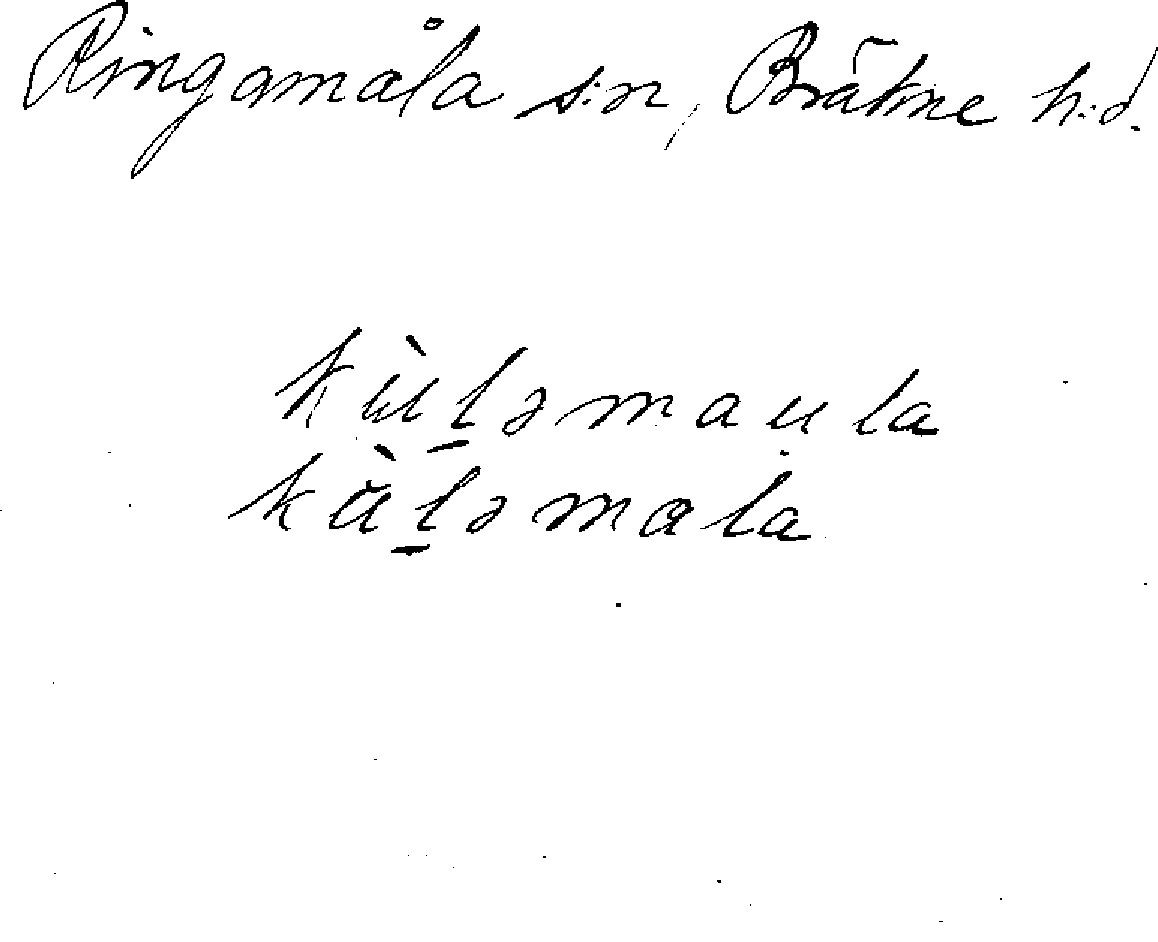 Ringamåla s:n, Bräkne h:d.
kùl̠əmau̯la
kùl̠əmala